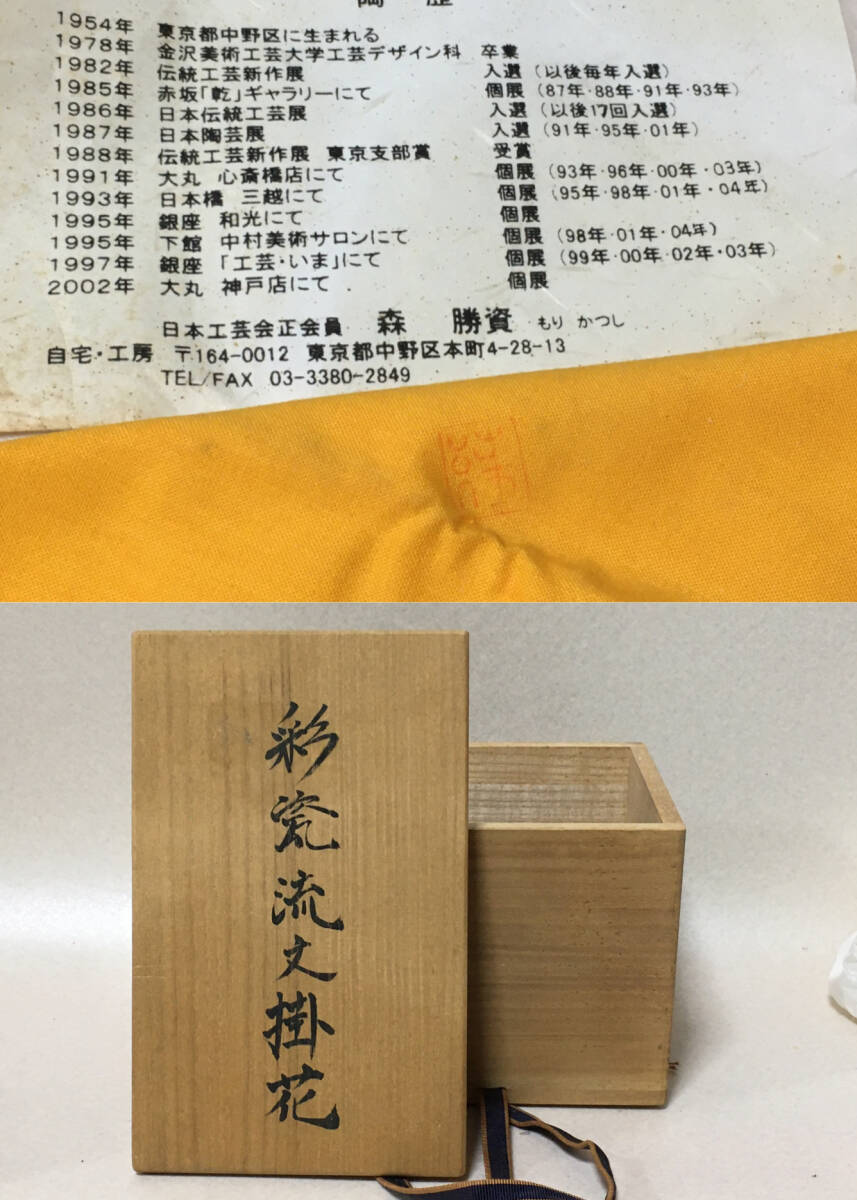 陶 歴
1954年 東京都中野区に生まれる
1978年 金沢美術工芸大学工芸デザイン科 卒業
1982年 伝統工芸新作展 入選 (以後毎年入選)
1985年 赤坂「乾」ギャラリーにて 個展 (87年・88年・91年・93年)
1986年 日本伝統工芸展 入選 (以後17回入選)
1987年 日本陶芸展 入選 (91年・95年・01年)
1988年 伝統工芸新作展 東京支部賞 受賞
1991年 大丸 心斎橋店にて 個展 (93年・96年・00年・03年)
1993年 日本橋 三越にて 個展 (95年・98年・01年・04年)
1995年 銀座 和光にて 個展
1995年 下館 中村美術サロンにて 個展 (98年・01年・04年)
1997年 銀座 「工芸・いま」にて 個展 (99年・00年・02年・03年)
2002年 大丸 神戸店にて 個展
日本工芸会正会員 森 勝資 もり かつし
自宅・工房 〒164-0012 東京都中野区本町4-28-13
TEL/FAX 03-3380-2849
彩瓷流文掛花